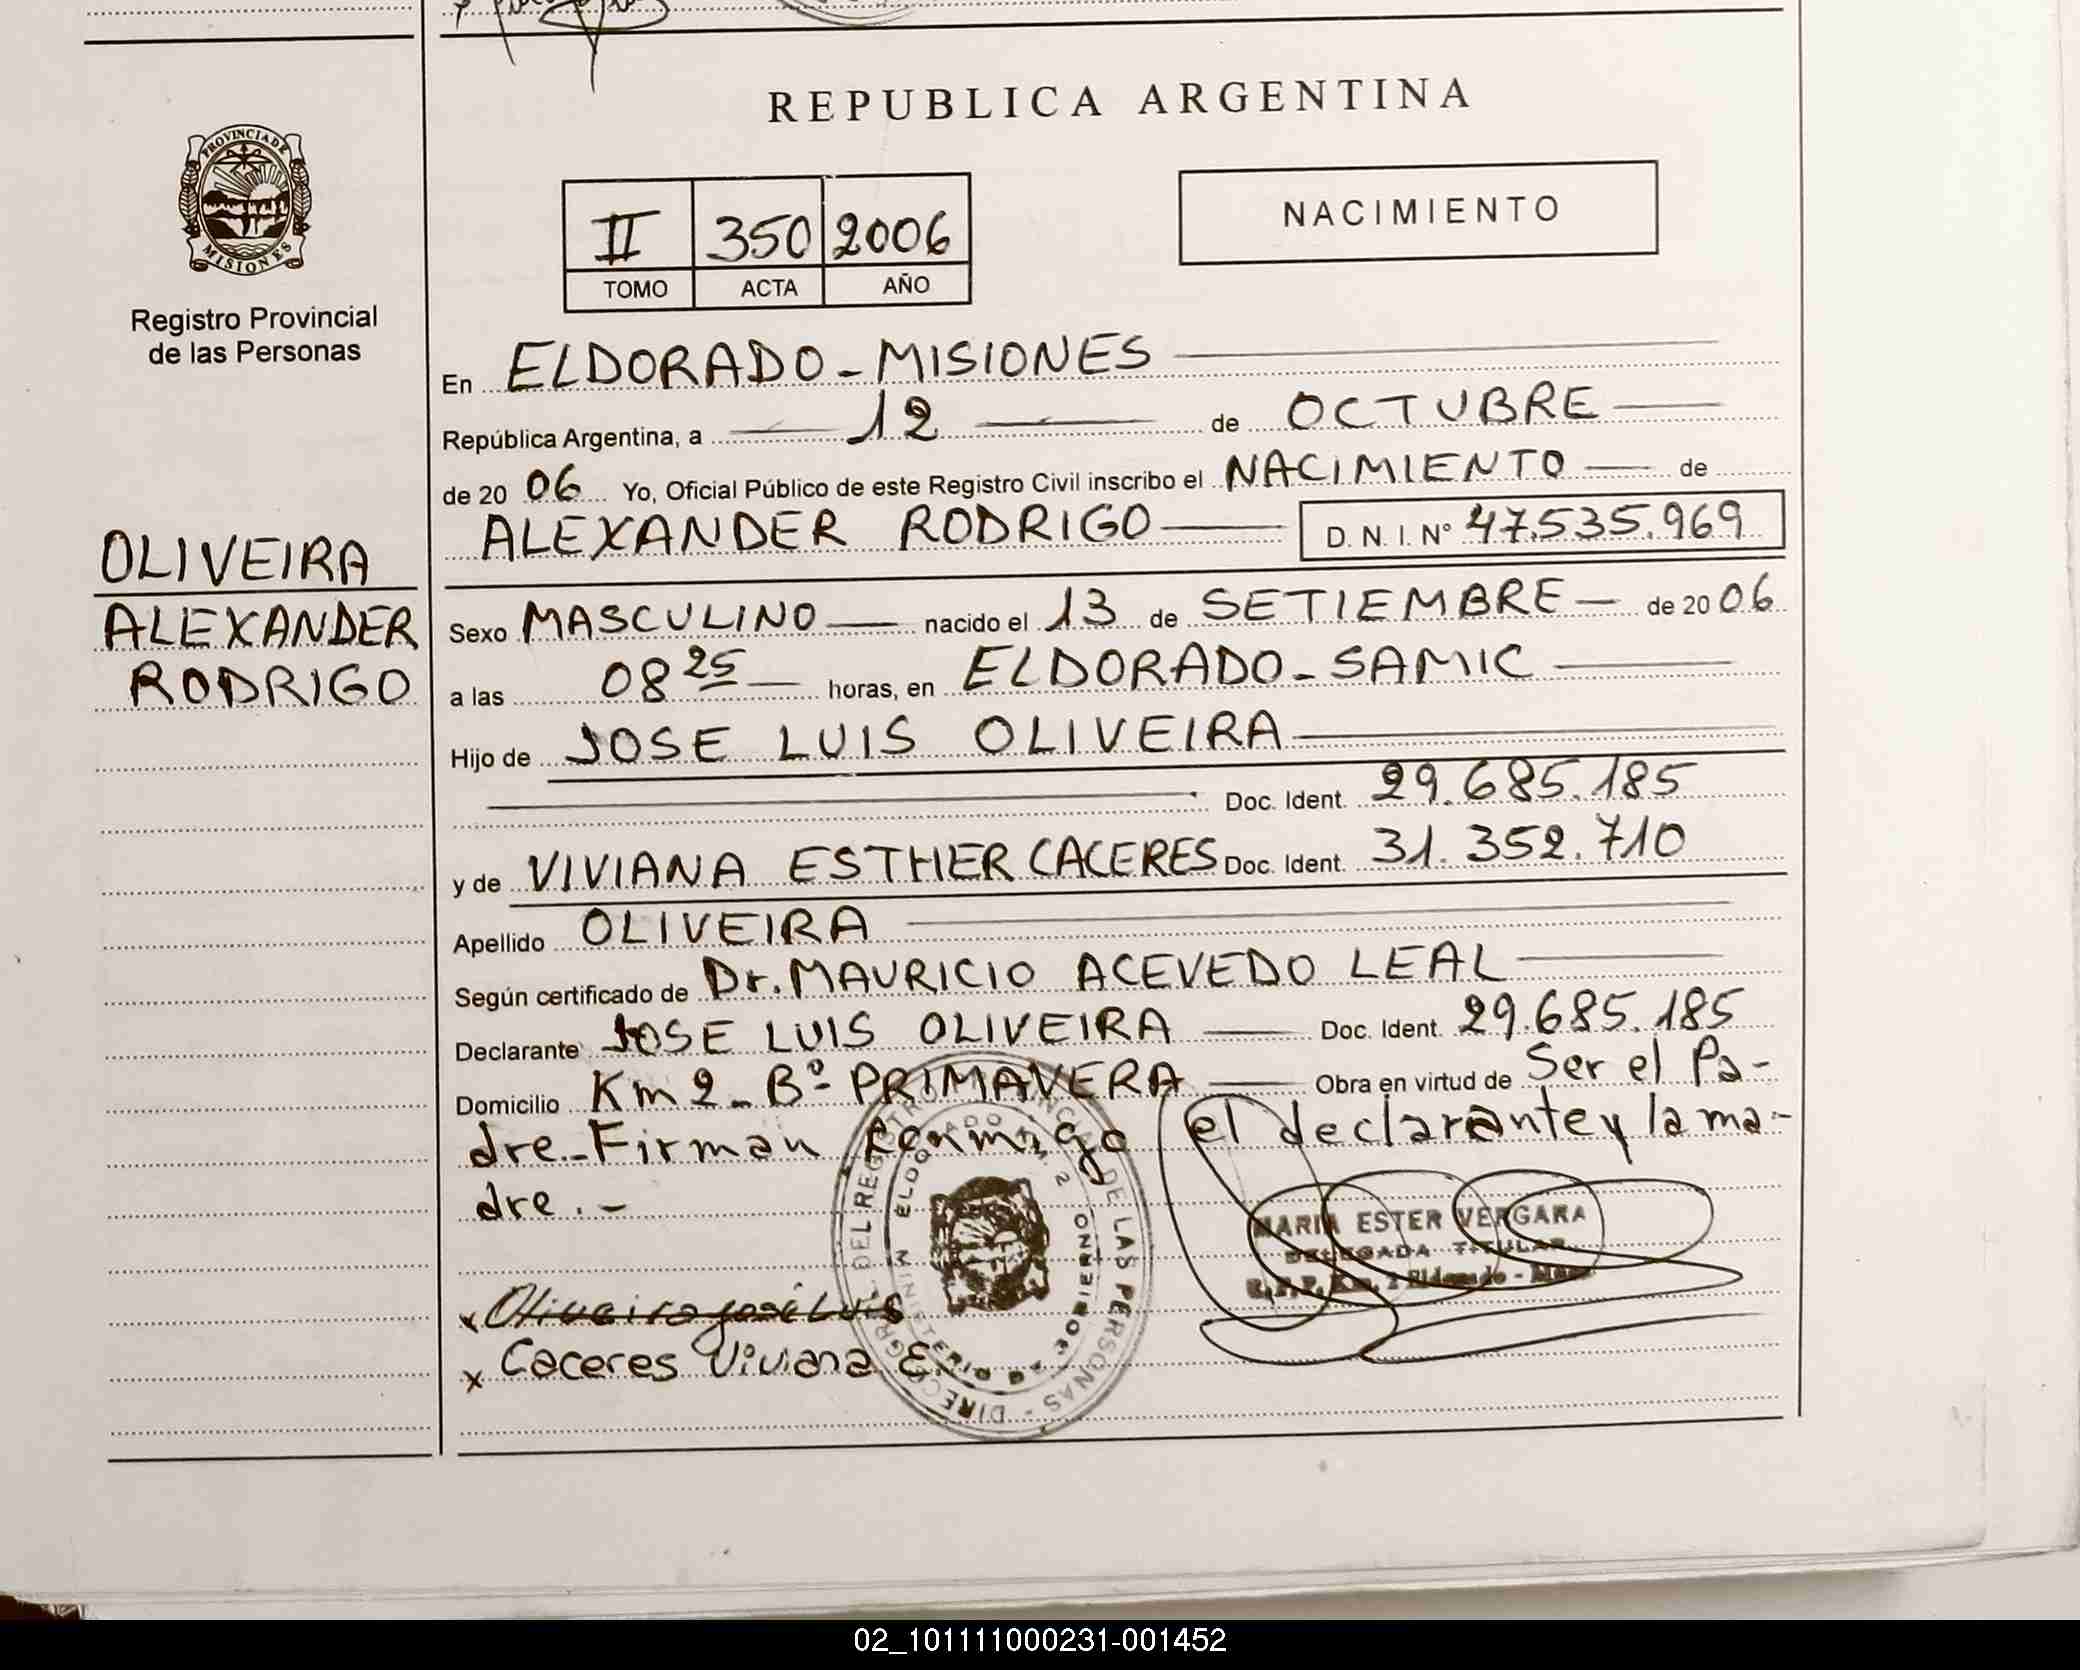 REPUBLICA ARGENTINA
PROVINCIA DE MISIONES
Registro Provincial
de las Personas
II 350 2006
TOMO ACTA AÑO
NACIMIENTO
En ELDORADO - MISIONES
República Argentina, a 12 de OCTUBRE
de 20 06 Yo, Oficial Público de este Registro Civil inscribo el NACIMIENTO de
ALEXANDER RODRIGO D. N. I. Nº 47.535.969
OLIVEIRA
ALEXANDER
RODRIGO
Sexo MASCULINO nacido el 13 de SETIEMBRE de 20 06
a las 08 25 horas, en ELDORADO - SAMIC
Hijo de JOSE LUIS OLIVEIRA
Doc. Ident. 29.685.185
y de VIVIANA ESTHER CACERES Doc. Ident. 31.352.710
Apellido OLIVEIRA
Según certificado de Dr. MAURICIO ACEVEDO LEAL
Declarante JOSE LUIS OLIVEIRA Doc. Ident. 29.685.185
Domicilio Km 2 - Bº PRIMAVERA Obra en virtud de Ser el Pa-
dre - Firman Conmigo el declarante y la ma-
dre . -
MARIA ESTER VERGARA
DELEGADA TITULAR
x Oliveira José Luis
x Caceres Viviana E.
02_101111000231-001452